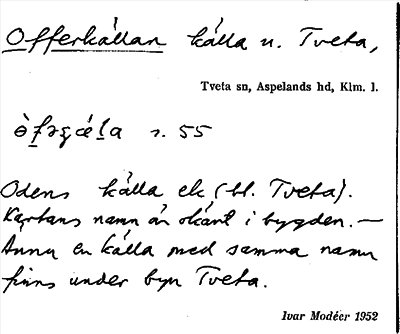 Offerkällan källa n. Tveta,
Tveta sn, Aspelands hd, Klm. l.
s. 55
Odens källa ek (bl. Tveta).
Kartans namn är okänt i bygden. —
Ännu en källa med samma namn
finns under byn Tveta.
Ivar Modéer 1952